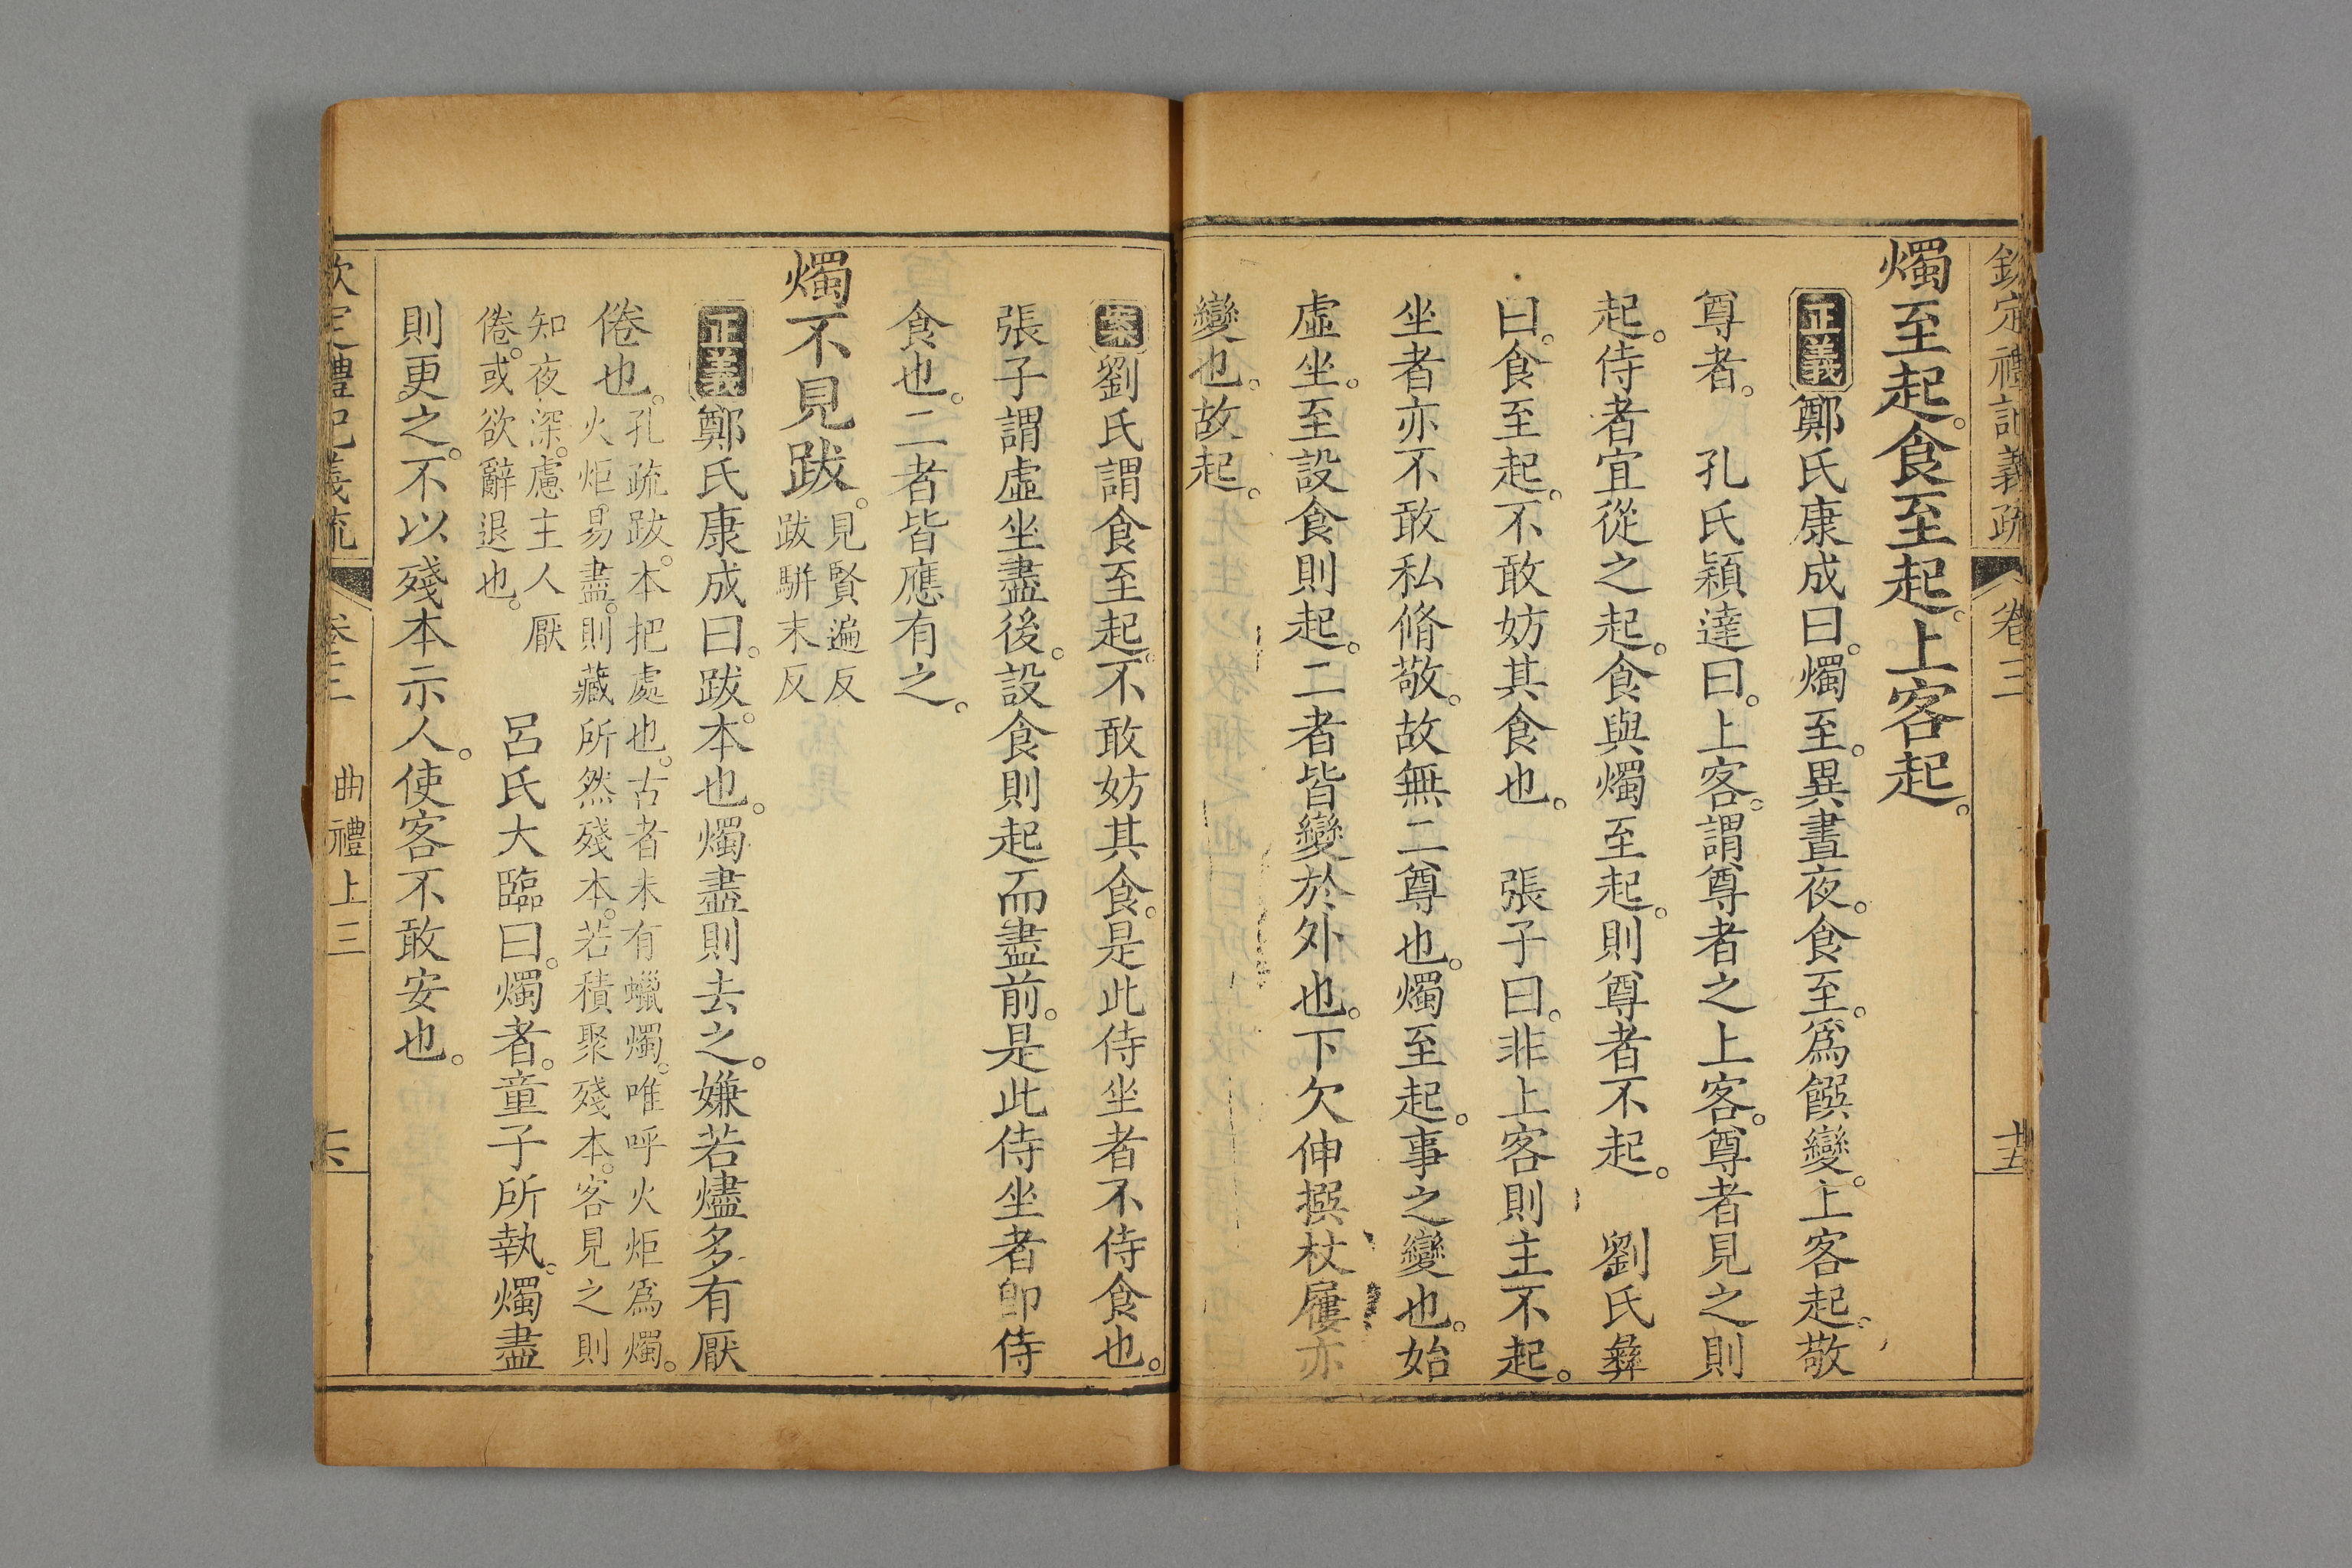 欽定禮記義疏 卷三 十五
燭至起。食至起。上客起。
正義鄭氏康成曰。燭至。異晝夜。食至。爲饌變。上客起。敬
尊者。 孔氏穎達曰。上客。謂尊者之上客。尊者見之則
起。侍者宜從之起。食與燭至起。則尊者不起。 劉氏彝
曰。食至起。不敢妨其食也。 張子曰。非上客則主不起。
坐者亦不敢私脩敬。故無二尊也。燭至起。事之變也。始
虛坐。至設食則起。二者皆變於外也。下欠伸撰杖屨亦
變也。故起。
案劉氏謂食至起。不敢妨其食。是此侍坐者不侍食也。
張子謂虛坐盡後。設食則起而盡前。是此侍坐者卽侍
食也。二者皆應有之。
燭不見跋。見賢遍反
跋駢末反
正義鄭氏康成曰。跋。本也。燭盡則去之。嫌若燼多有厭
倦也。孔疏跋。本把處也。古者未有蠟燭。唯呼火炬爲燭。
火炬易盡。則藏所然殘本。若積聚殘本。客見之則
知夜深。慮主人厭
倦。或欲辭退也。 呂氏大臨曰。燭者。童子所執。燭盡
則更之。不以殘本示人。使客不敢安也。
欽定禮記義疏 卷三 曲禮上三 十六